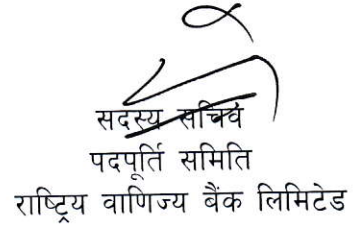 सदस्य सचिव
पदपूर्ति समिति
राष्ट्रिय वाणिज्य बैंक लिमिटेड